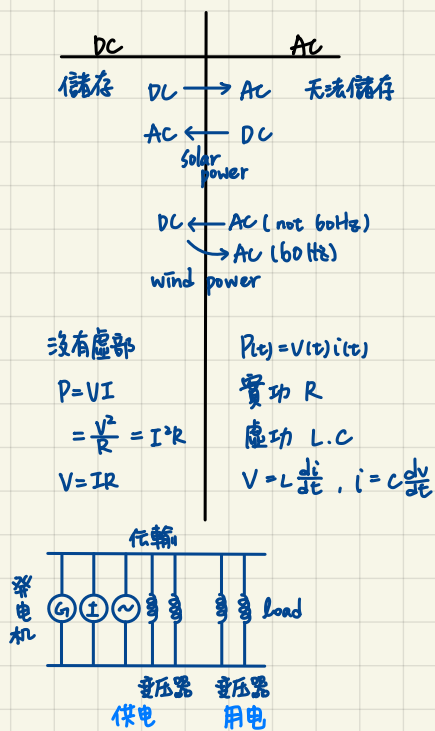 DC AC
儲存 DC → AC 无法儲存
AC ← DC
solar
power
DC ← AC ( not 60Hz )
→ AC (60 Hz)
wind power
沒有虛部 P(t) = V(t) i(t)
P = VI 實功 R
= V²/R = I²R 虛功 L.C
V = IR V = L di/dt , i = C dv/dt
伝輸
発电机 G ± ~ load
变压器 变压器
供电 用电